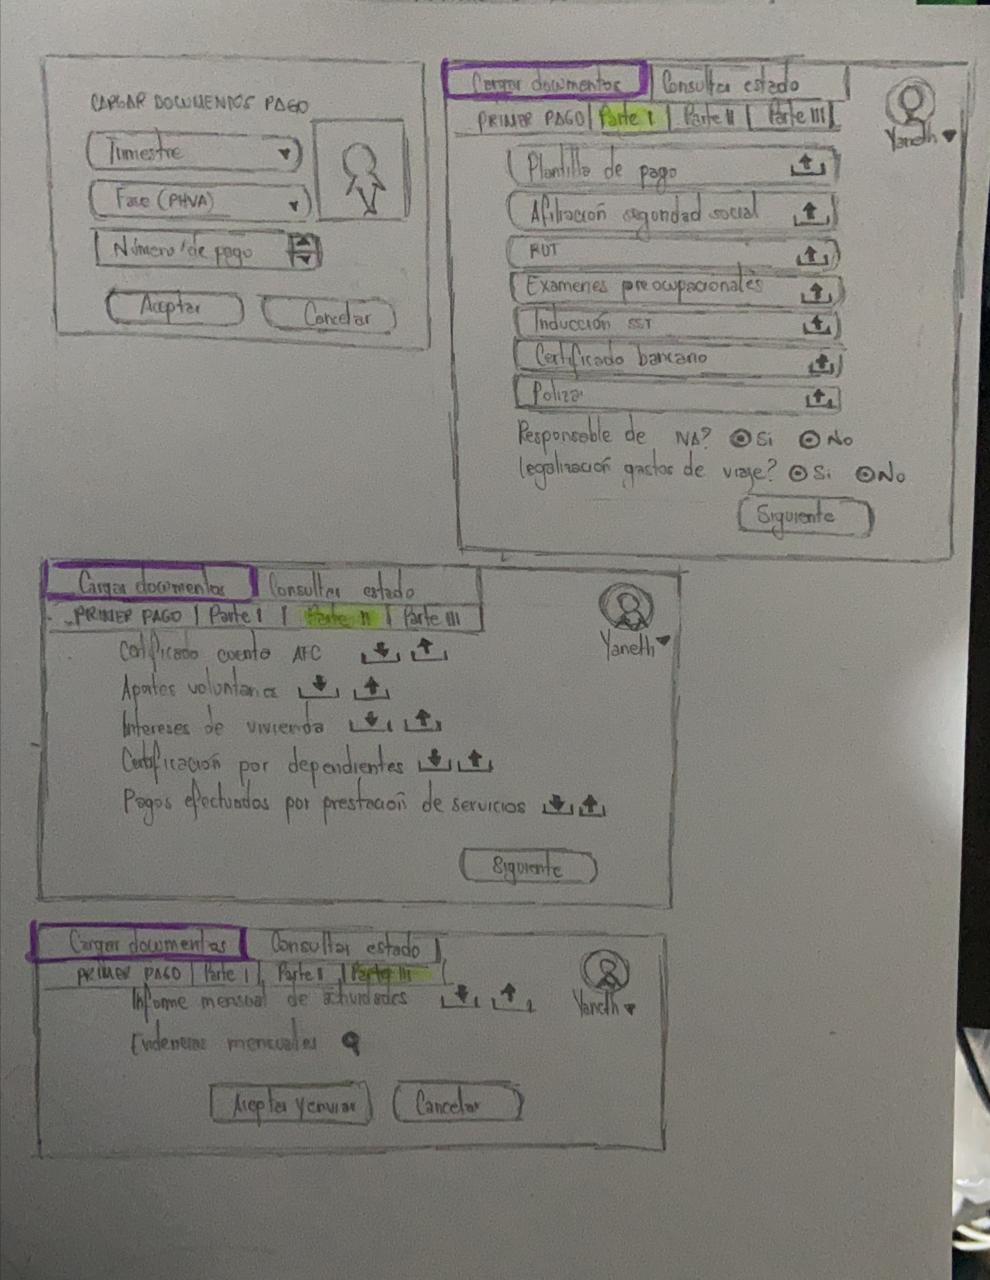 CARGAR DOCUMENTOS PAGO
Trimestre
Fase (PHVA)
Número de pago
Aceptar Cancelar
Cargar documentos Consultar estado
PRIMER PAGO | Parte I | Parte II | Parte III
Yaneth
Plantilla de pago
Afiliación seguridad social
RUT
Examenes preocupacionales
Inducción SST
Certificado bancario
Poliza
Responsable de NA? Si No
legalización gastos de viaje? Si No
Siguiente
Cargar documentos Consultar estado
PRIMER PAGO | Parte I | Parte II | Parte III
Yaneth
Certificado cuenta AFC
Aportes voluntarios
Intereses de vivienda
Certificación por dependientes
Pagos efectuados por prestación de servicios
Siguiente
Cargar documentos Consultar estado
PRIMER PAGO | Parte I | Parte II | Parte III
Yaneth
Informe mensual de actividades
Evidencias mensuales
Aceptar y enviar Cancelar